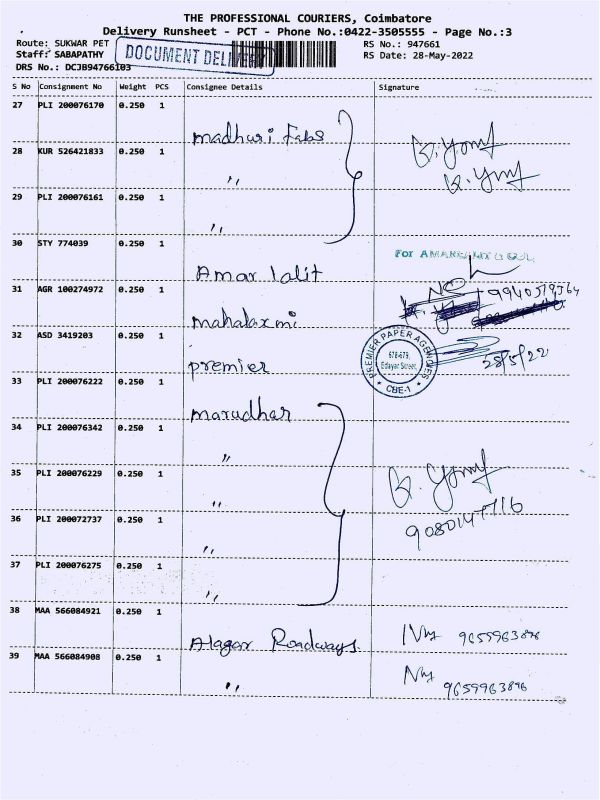 THE PROFESSIONAL COURIERS, Coimbatore
Delivery Runsheet - PCT - Phone No.:0422-3505555 - Page No.:3
Route: SUKWAR PET
RS No.: 947661
Staff: SABAPATHY
DOCUMENT DELIVERY
RS Date: 28-May-2022
DRS No.: DCJB94766103
S No Consignment No Weight PCS Consignee Details Signature
27 PLI 200076170 0.250 1
Madhuri Fabs
28 KUR 526421833 0.250 1
"
29 PLI 200076161 0.250 1
"
30 STY 774039 0.250 1
Amar lalit
For AMAR
31 AGR 100274972 0.250 1
mahalaxmi
9940579564
32 ASD 3419203 0.250 1
premier
PREMIER PAPER AGENCIES
678-679,
Edayar Street,
CBE-1
28/5/22
33 PLI 200076222 0.250 1
marudhar
34 PLI 200076342 0.250 1
"
35 PLI 200076229 0.250 1
"
36 PLI 200072737 0.250 1
"
37 PLI 200076275 0.250 1
"
38 MAA 566084921 0.250 1
Alagar Roadways
9659963896
39 MAA 566084908 0.250 1
"
9659963896